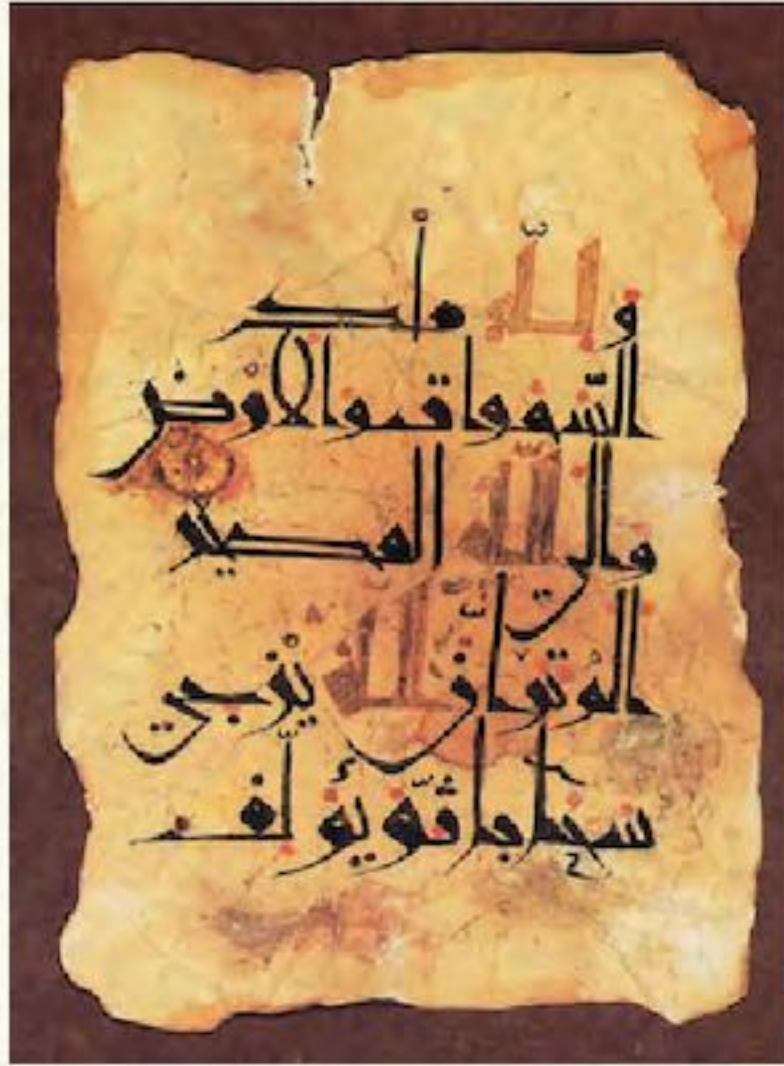 وَلِلّٰه ملك
السَّموات والأرْض
والى اللّٰه المصير
الم تر أنَّ اللّٰه يُزْجى
سحابا ثُمَّ يؤلّف